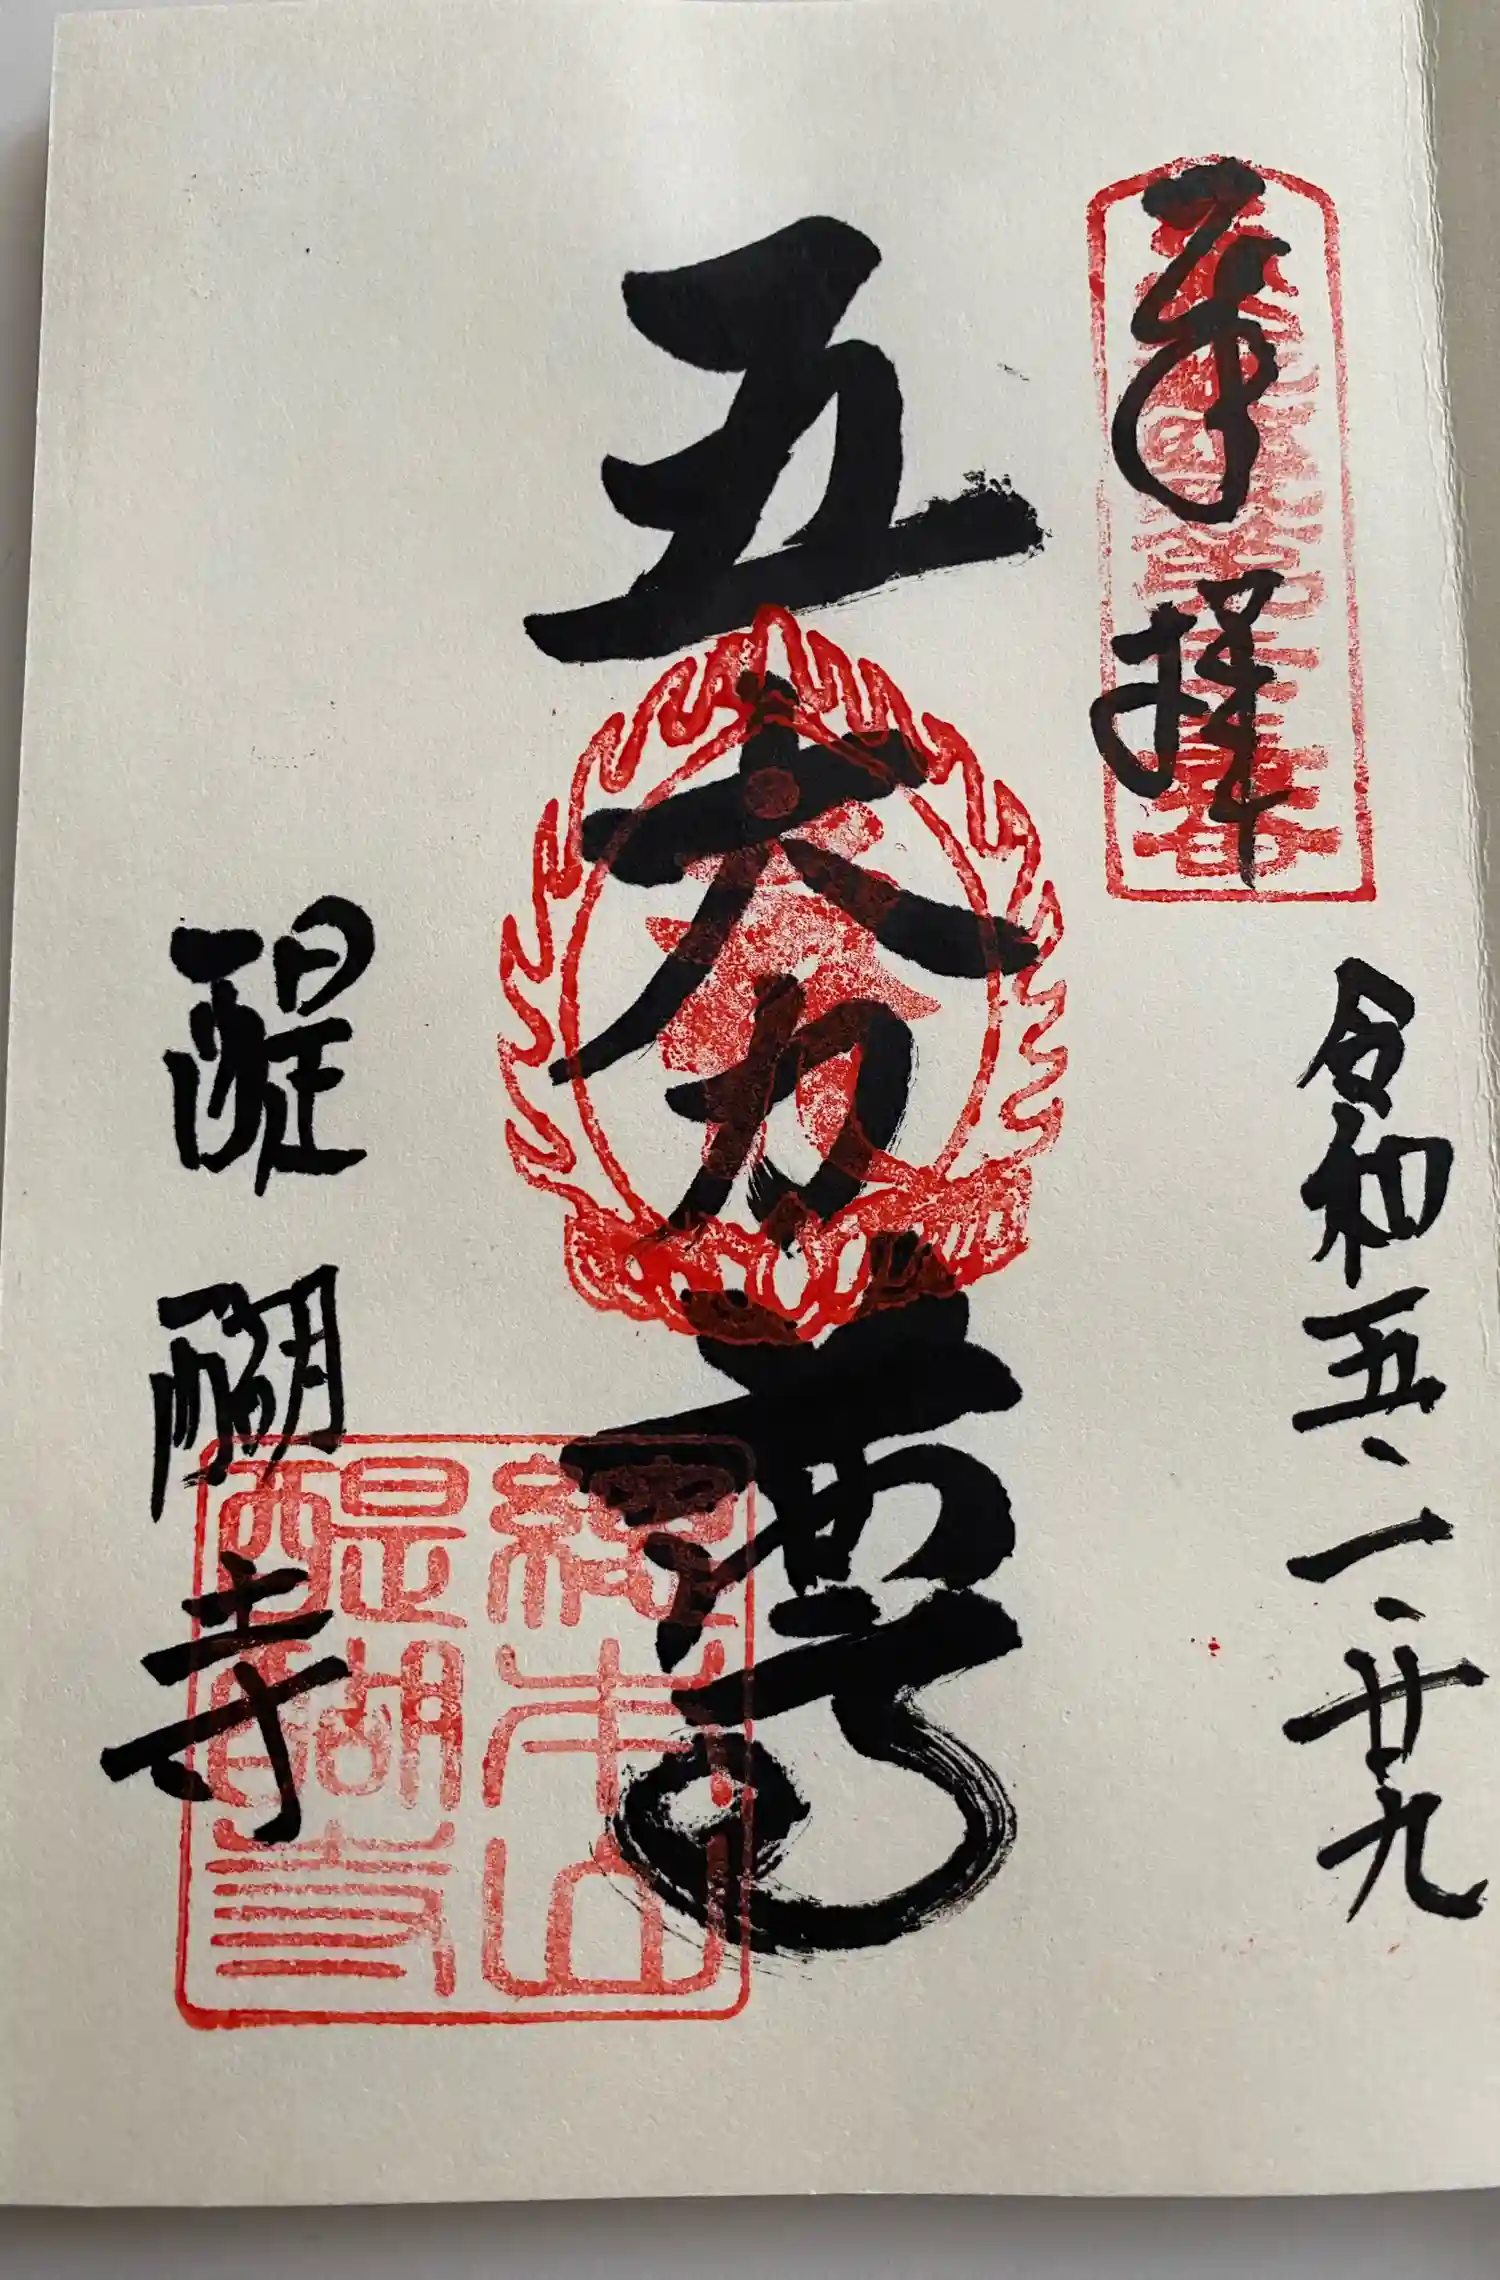 奉拝
令和五、一、廿九
五大力尊
醍醐寺
總本山
醍醐寺